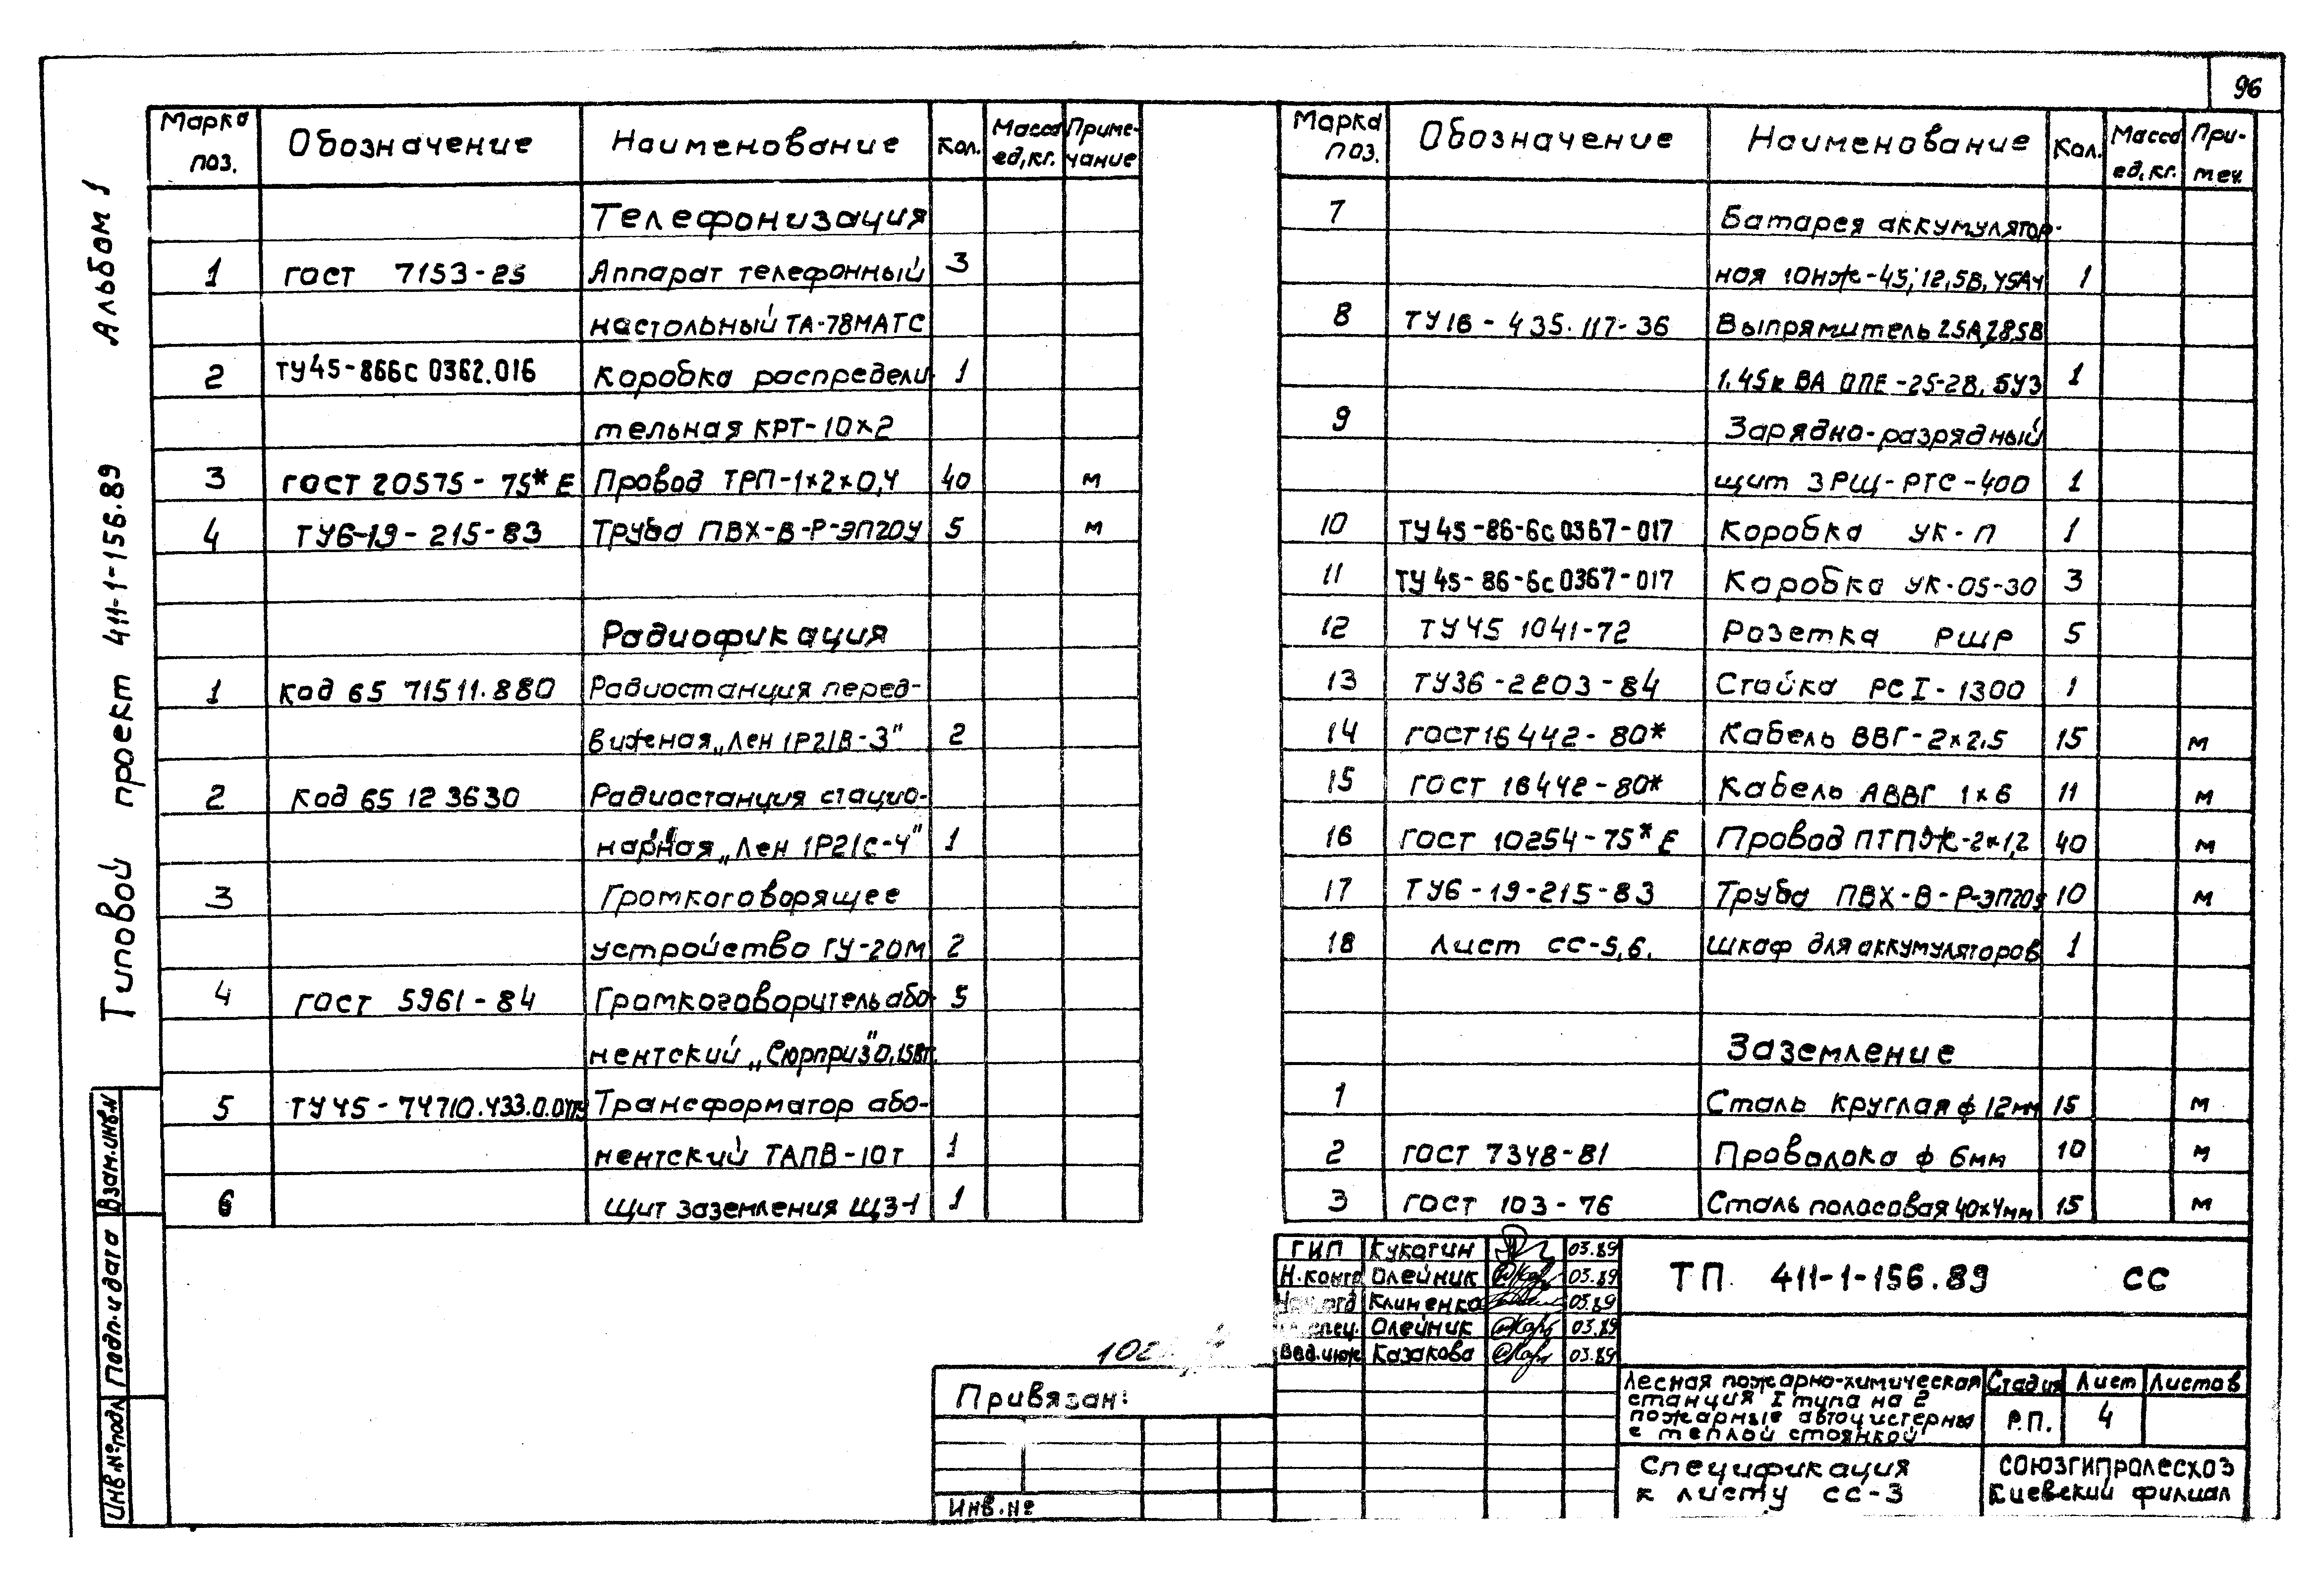 96
Альбом 1
Типовой проект 411-1-156.89
Взам.инв.N
Подп.и дата
Инв.№подл
Марка поз. Обозначение Наименование Кол. Масса ед,кг. Приме-чание
Телефонизация
1 ГОСТ 7153-25 Аппарат телефонный 3
настольный ТА-78МАТС
2 ТУ45-866с 0362.016 Коробка распредели- 1
тельная КРТ-10×2
3 ГОСТ 20575-75* Е Провод ТРП-1×2×0,4 40 м
4 ТУ6-19-215-83 Труба ПВХ-В-Р-ЭП20У 5 м
Радиофикация
1 Код 65 71511.880 Радиостанция перед-
вижная „Лен 1Р21В-3" 2
2 Код 65 12 3630 Радиостанция стацио-
нарная „Лен 1Р21С-4" 1
3 Громкоговорящее
устройство ГУ-20М 2
4 ГОСТ 5961-84 Громкоговоритель або- 5
нентский „Сюрприз" 0,15Вт.
5 ТУ45-74710.433.0.0 Трансформатор або-
нентский ТАПВ-10т 1
6 Щит заземления ЩЗ-1 1
Марка поз. Обозначение Наименование Кол. Масса ед,кг. При-меч.
7 Батарея аккумулятор-
ная 10НЖ-45; 12,5В, 45Ач 1
8 ТУ16-435.117-36 Выпрямитель 25А,28,5В
1.45кВА ОПЕ-25-28.5У3 1
9 Зарядно-разрядный
щит ЗРЩ-РТС-400 1
10 ТУ45-86-6с0367-017 Коробка УК-П 1
11 ТУ45-86-6с0367-017 Коробка УК-05-30 3
12 ТУ45 1041-72 Розетка РШР 5
13 ТУ36-2203-84 Стойка РС I-1300 1
14 ГОСТ16442-80* Кабель ВВГ-2×2.5 15 м
15 ГОСТ 16442-80* Кабель АВВГ 1×6 11 м
16 ГОСТ 10254-75* Е Провод ПТПЖ-2×1,2 40 м
17 ТУ6-19-215-83 Труба ПВХ-В-Р-ЭП20У 10 м
18 Лист СС-5,6. Шкаф для аккумуляторов 1
Заземление
1 Сталь круглая ф 12мм 15 м
2 ГОСТ 7348-81 Проволока ф 6мм 10 м
3 ГОСТ 103-76 Сталь полосовая 40×4мм 15 м
ГИП Кукотин 03.89
Н.контр Олейник 03.89
Нач.отд Клименко 03.89
спец. Олейник 03.89
Вед.инж Казакова 03.89
ТП 411-1-156.89 СС
Лесная пожарно-химическая
станция I типа на 2
пожарные автоцистерны
с теплой стоянкой
Стадия Лист Листов
Р.П. 4
Спецификация
к листу СС-3
СОЮЗГИПРОЛЕСХОЗ
Киевский филиал
Привязан:
Инв.№